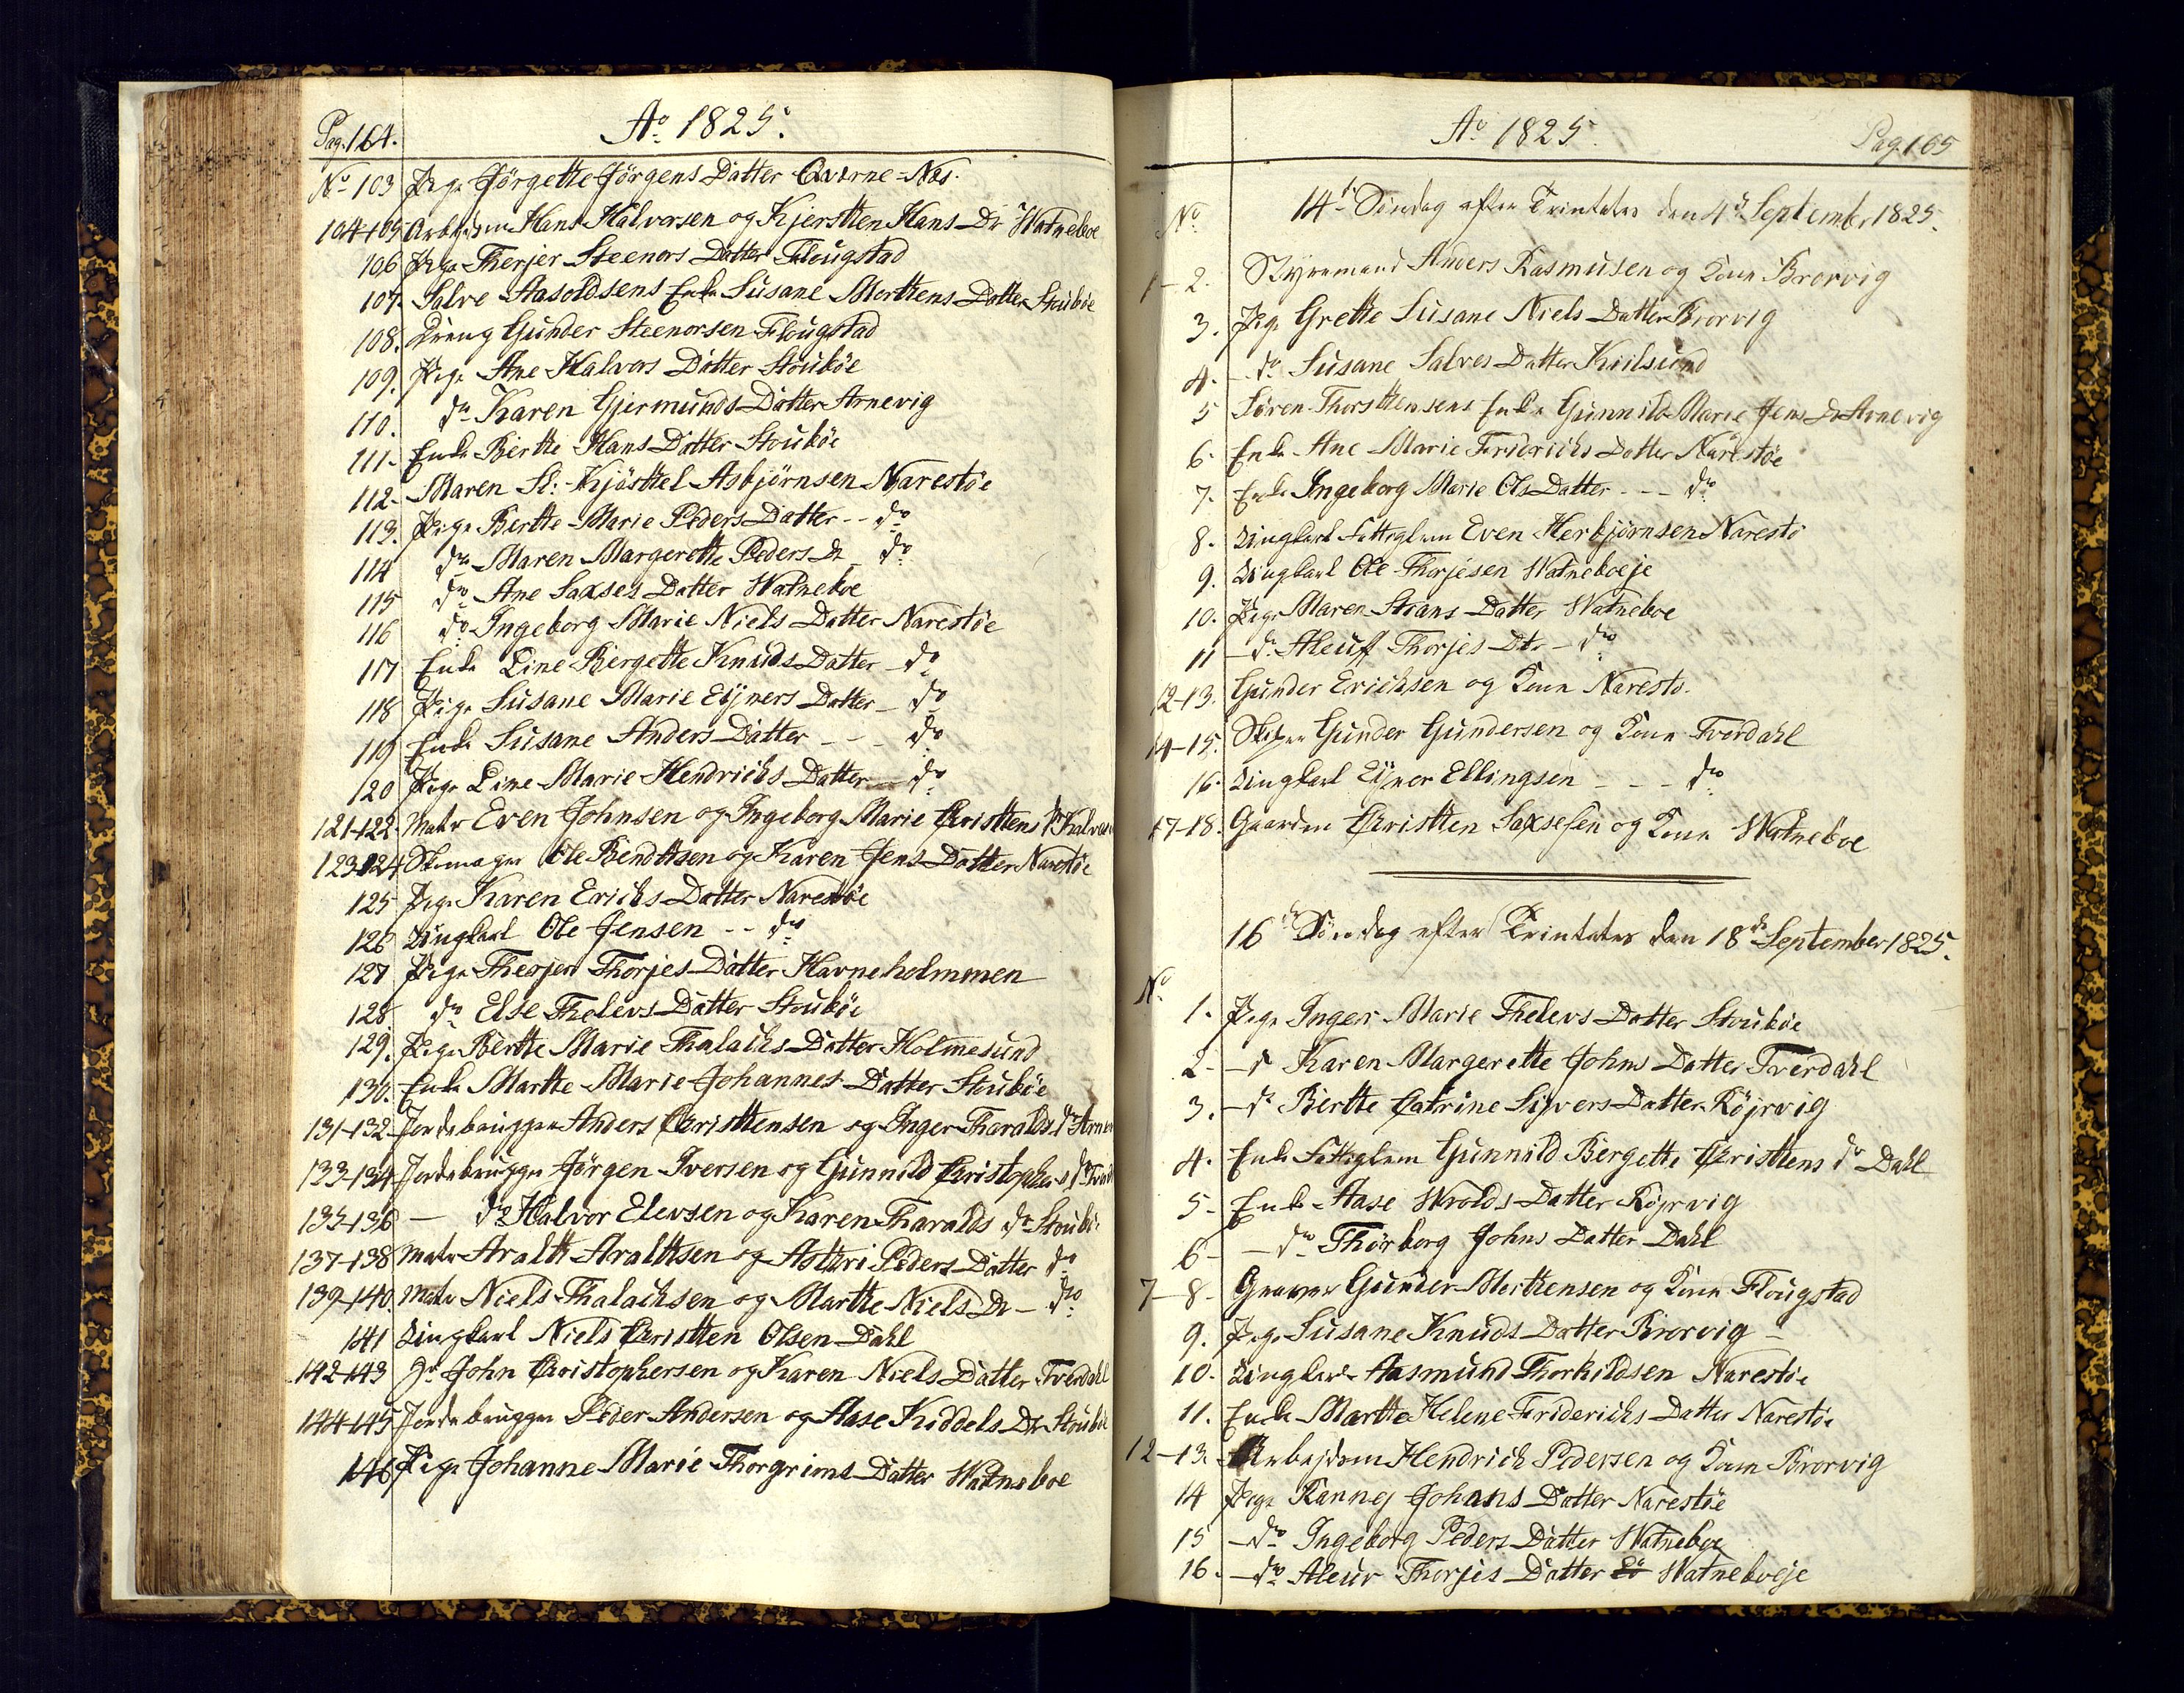 Pag. 164.
Ao 1825.
No 103 Pige Jörgette Jörgens Datter Qverne-Næs.
104-105 Arbejdsm Hans Halvorsen og Kjerstten Hans Dr Watneboe
106 Pige Therjer Steenors Datter Flougstad
107- Salve Aasoldsens Enke Susane Morttens Datter Stouböe
108. Dreng Gunder Steenorsen Flougstad
109. Pige Ane Halvors Datter Stouböe
110. do Karen Gjermunds Datter Arnevig
111- Enke Birtte Hans Datter Stouböe
112- Maren Sl: Kjösttel Asbjörnsen Narestöe
113. Pige Bertte Marie Peders Datter -- do
114 do Maren Margerette Peders Dr do
115 do Ane Saxses Datter Watneboe
116 do Ingeborg Marie Niels Datter Narestöe
117 Enke Line Bergette Knuds Datter - do
118 Pige Susane Marie Eijners Datter - do
119 Enke Susane Anders Datter - - - do
120 Pige Line Marie Hendrichs Datter - do
121-122- Matr Even Johnsen og Ingeborg Marie Cristtens Dr
123-124 Skomager Ole Bendttsen og Karen Jens Datter Narestöe
125 Pige Karen Erichs Datter Narestöe
126 Ungkarl Ole Jensen -- do
127 Pige Therjer Thorjes Datter Havneholmmen
128 do Else Thelevs Datter Stouböe
129. Pige Bertte Marie Thalachs Datter Holmesund
130. Enke Martte Marie Johannes Datter Stouböe
131-132 Jordebrugger Anders Cristtensen og Inger Tharalds dr
133-134 Jordebrugger Jörgen Iversen og Gunnild Cristophers dr
135-136 - do Halvor Elevsen og Karen Tharalds dr Stouböe
137-138 Matr Araltt Aralttsen og Astthri Peders Datter do
139-140. Matr Niels Thalachsen og Martte Niels Dr - do
141 Ungkarl Niels Cristten Olsen Dahl
142-143 Gr John Cristophersen og Karen Niels Datter Tverdahl
144-145 Jordebrugger Peder Andersen og Aase Kiddels Dr Stouböe
146 Pige Johanne Marie Thorgrims Datter Watneboe
Ao 1825.
Pag. 165
14de Söndag efter Trinitates den 4de September 1825.
No
1-2. Styrmand Anders Rasmusen og Kone Brorvig
3. Pige Grette Susane Niels Datter Brorvig
4. - do Susane Salves Datter Kiilsund
5 Sören Thorsttensens Enke Gunnild Marie Jens Dr Arnevig
6. Enke Ane Marie Friderichs Datter Narestöe
7. Enke Ingeborg Marie Ols Datter - - - do
8. Ungkarl Fattiglem Even Herbjörnsen Narestö
9. Ungkarl Ole Thorjesen Watneboeje
10. Pige Maren Strans Datter Watneboe
11 - do Aleuff Thorjes Dtr - do
12-13. Gunder Erichsen og Kone Narestö.
14-15. Skipper Gunder Gundersen og Kone Tverdahl
16. Ungkarl Eijner Ellingsen - - - do
17-18. Gaardm Cristten Saxsesen og Kone Watneboe
16de Söndag efter Trinitates den 18de September 1825.
No
1. Pige Inger Marie Thelevs Datter Stouböe
2- - do Karen Margerette Johns Datter Tverdahl
3. - do Birtte Catrine Sijvers Datter Röjrvig
4. Enke Fattiglem Gunnild Bergette Cristtens dr Dahl
5- Enke Aase Wrolds Datter Röjrvig
6- - do Thorborg Johns Datter Dahl
7-8- Graver Gunder Morttensen og Kone Flougstad
9. Pige Susane Knuds Datter Brorvig -
10. Ungkarl Aasmund Thorkildsen Narestöe
11. Enke Martte Helene Friderichs Datter Narestöe
12-13. Arbejdsm Hendrich Pedersen og Kone Brorvig
14 Pige Rannej Johans Datter Narestöe
15 - do Ingeborg Peders Datter Watneboe
16. - do Aleuv Thorjes Datter Watneboeje